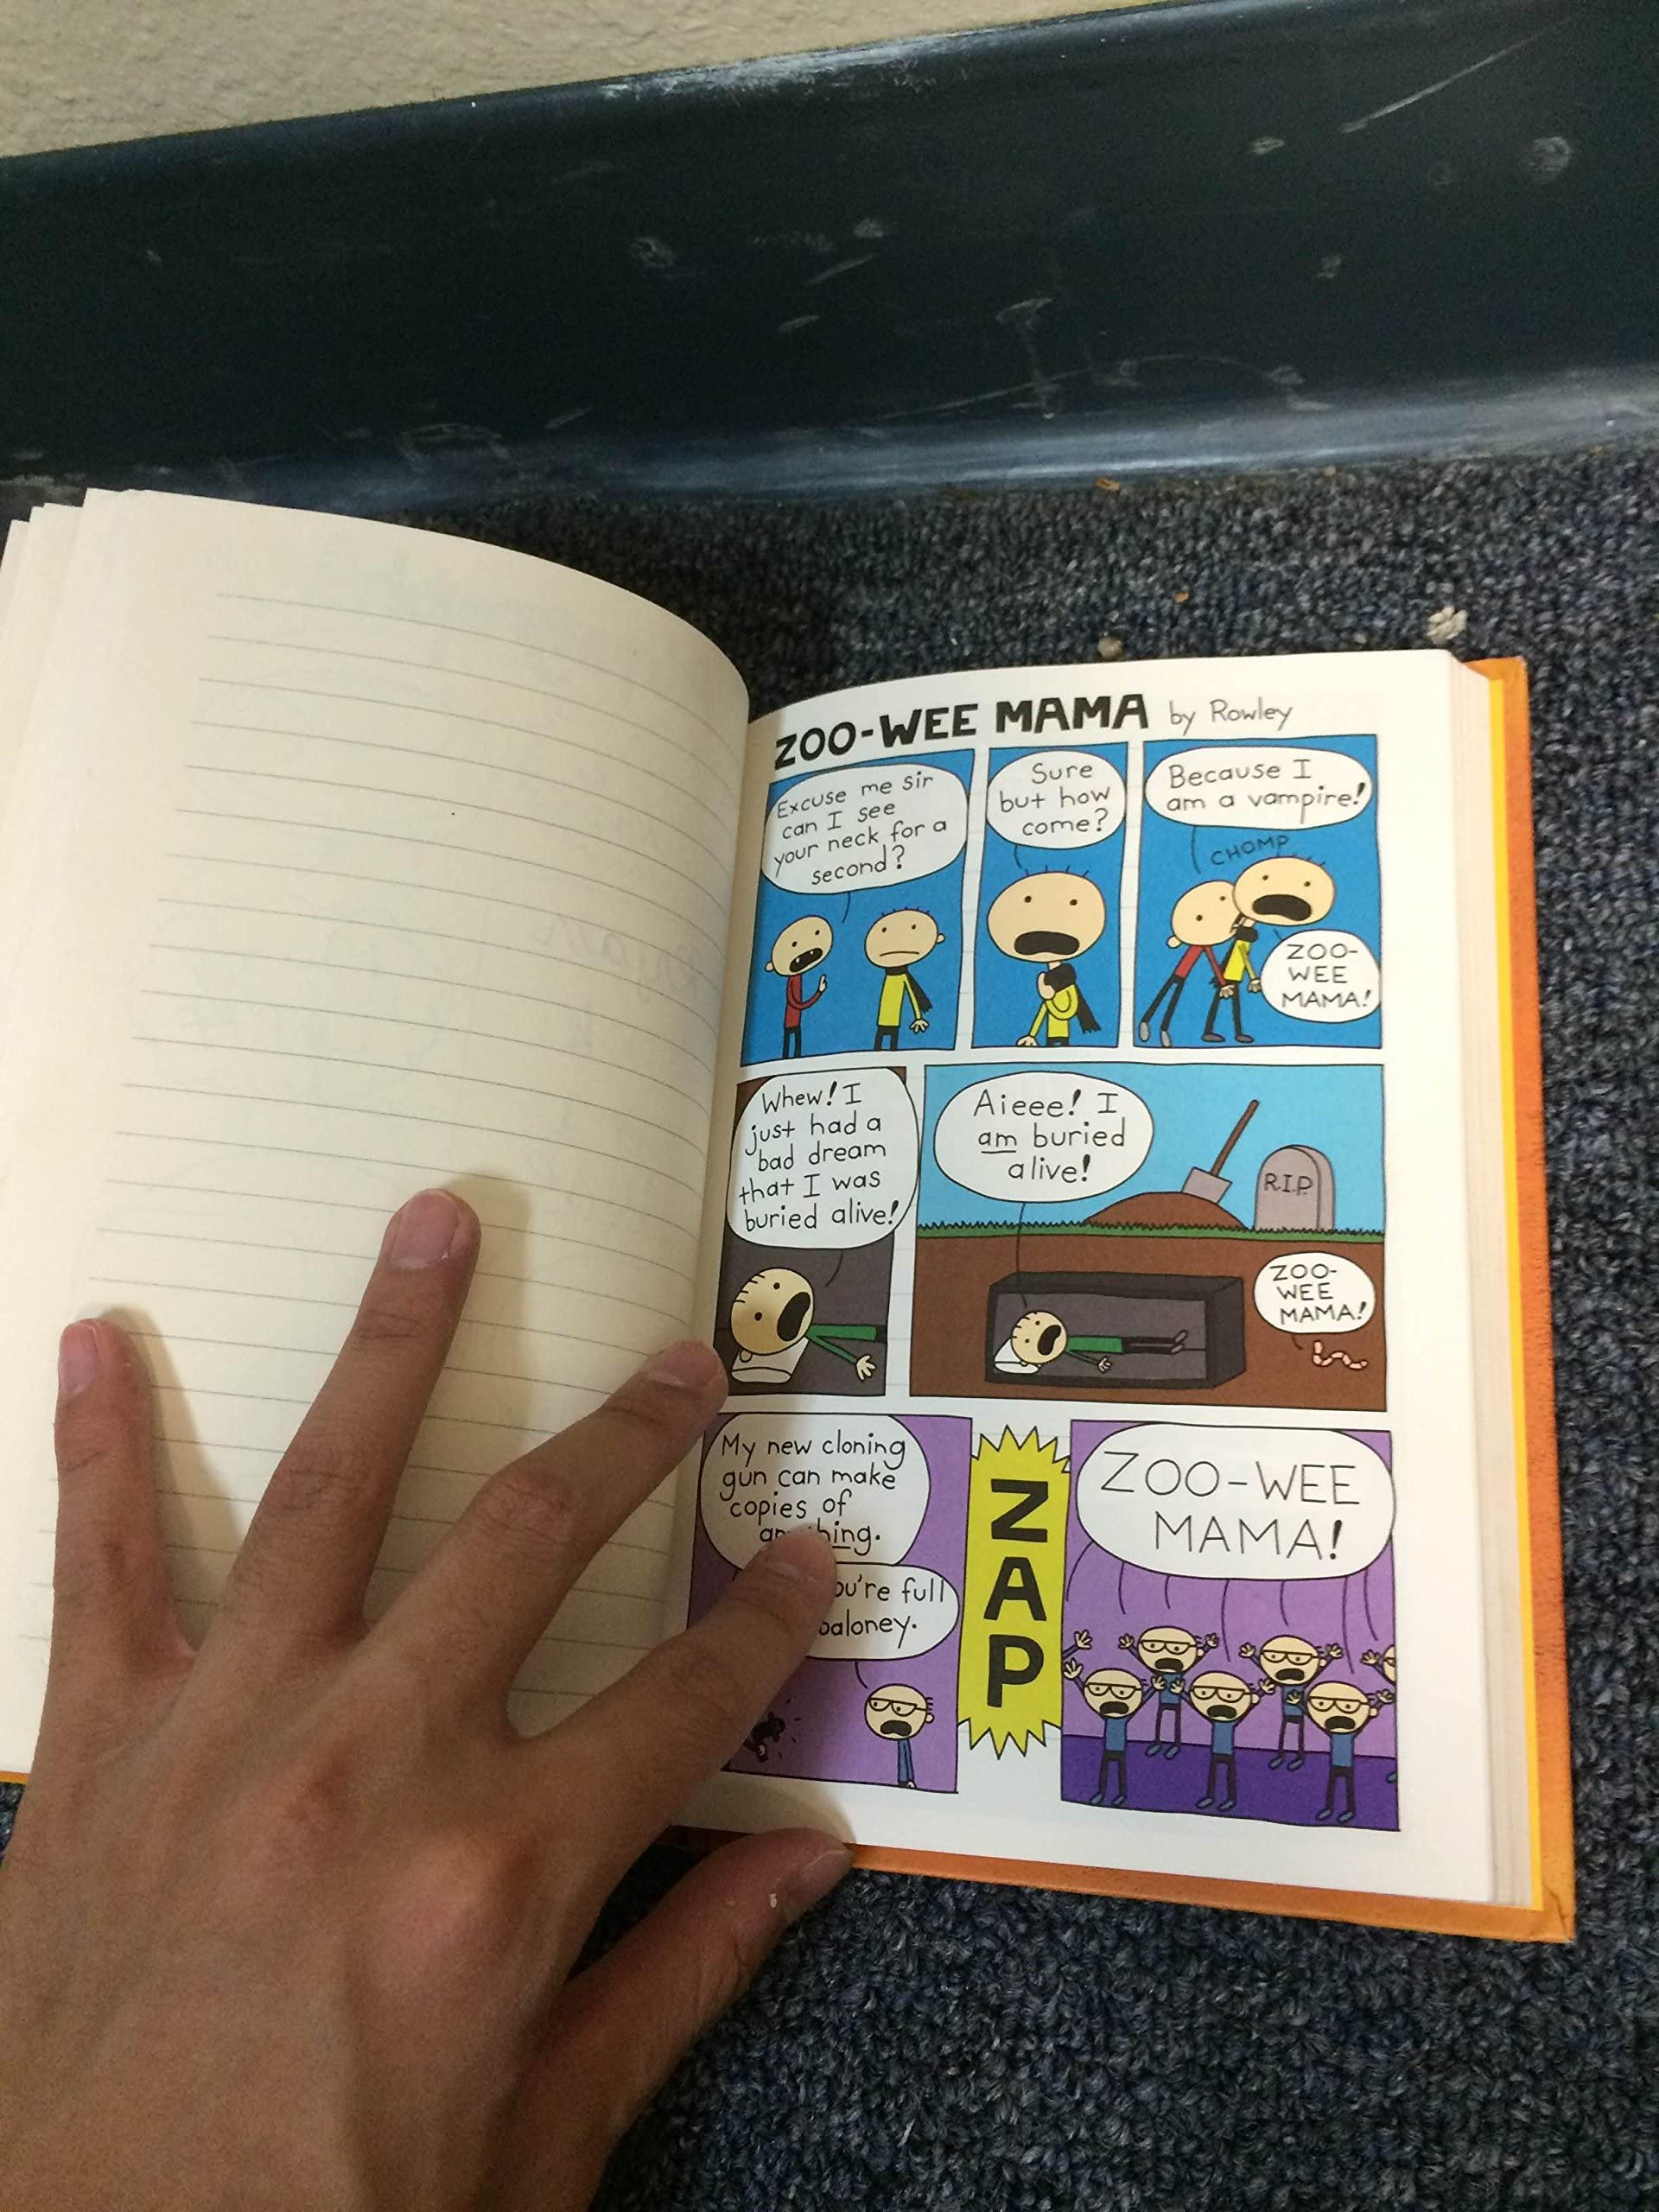 ZOO-WEE MAMA by Rowley
Excuse me sir
can I see
your neck for a
second?
Sure
but how
come?
Because I
am a vampire!
CHOMP
ZOO-
WEE
MAMA!
Whew! I
just had a
bad dream
that I was
buried alive!
Aieee! I
am buried
alive!
R.I.P.
ZOO-
WEE
MAMA!
My new cloning
gun can make
copies of
full
baloney.
ZAP
ZOO-WEE
MAMA!